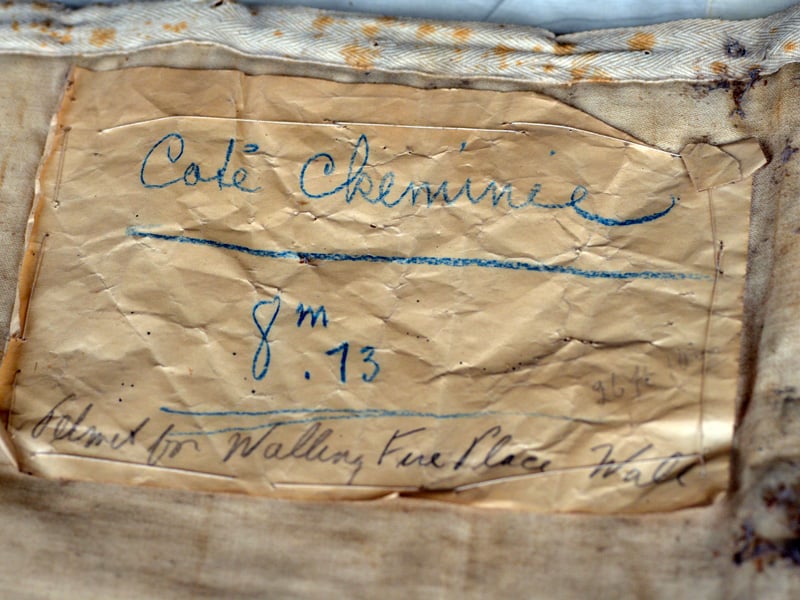 Coté Cheminée
8 m
.73
26 ft
for Walling Fire Place Wall